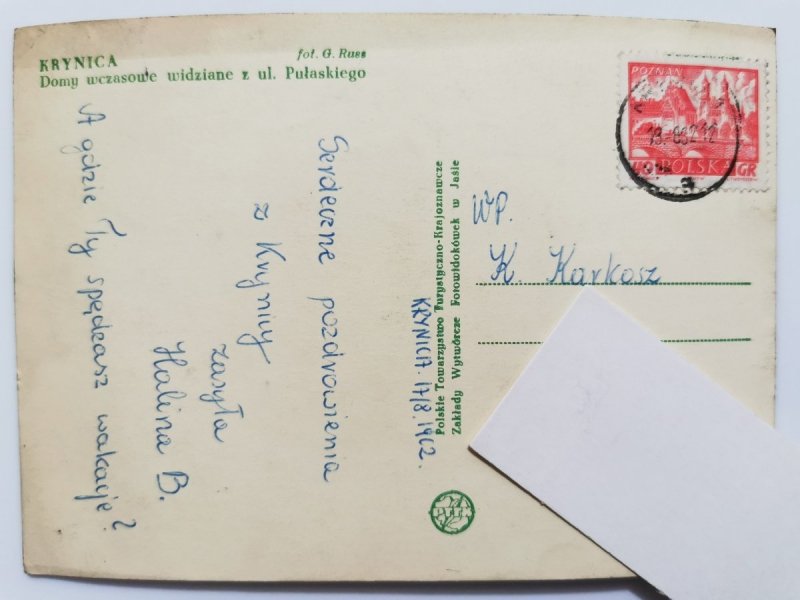 KRYNICA
fot. G. Russ
Domy wczasowe widziane z ul. Pułaskiego
Serdeczne pozdrowienia
z Krynicy
zasyła
Halina B.
A gdzie Ty spędzasz wakacje?
KRYNICA 17/8.1962.
Polskie Towarzystwo Turystyczno-Krajoznawcze
Zakłady Wytwórcze Fotowidokówek w Jaśle
PTTK
POZNAŃ
POLSKA
GR
WP.
K. Karkosz